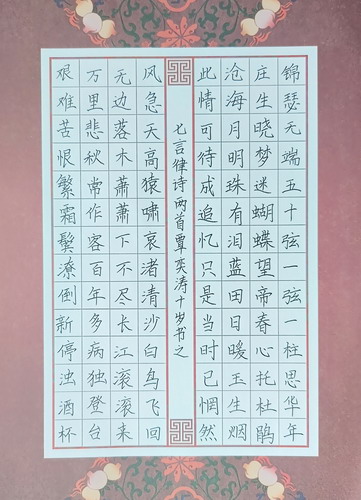 锦瑟无端五十弦一弦一柱思华年
庄生晓梦迷蝴蝶望帝春心托杜鹃
沧海月明珠有泪蓝田日暖玉生烟
此情可待成追忆只是当时已惘然
七言律诗两首覃奕涛十岁书之
风急天高猿啸哀渚清沙白鸟飞回
无边落木萧萧下不尽长江滚滚来
万里悲秋常作客百年多病独登台
艰难苦恨繁霜鬓潦倒新停浊酒杯